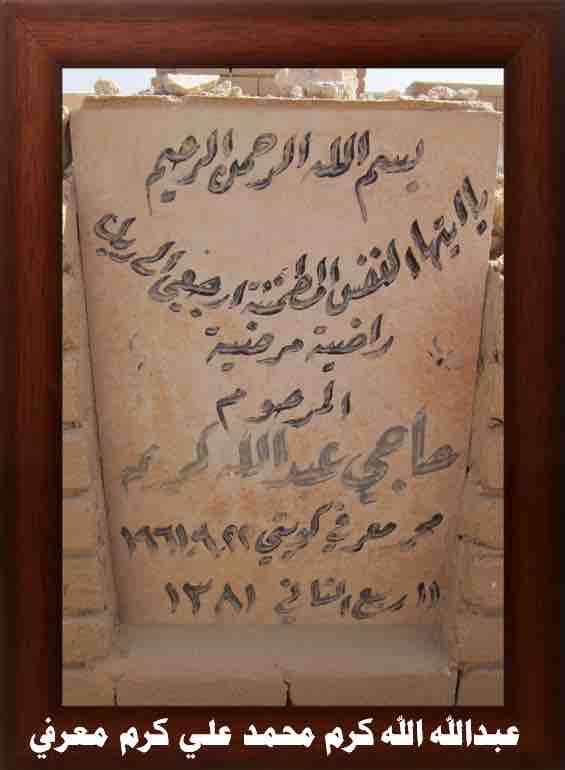 بسم الله الرحمن الرحيم
يا ايتها النفس المطمئنة ارجعي الى ربك
راضية مرضية
المرحوم
حاجي عبد الله كرم
محمد معرفي كويتي ٢٢.٩.١٩٦١
١١ ربيع الثاني ١٣٨١
عبدالله الله كرم محمد علي كرم معرفي